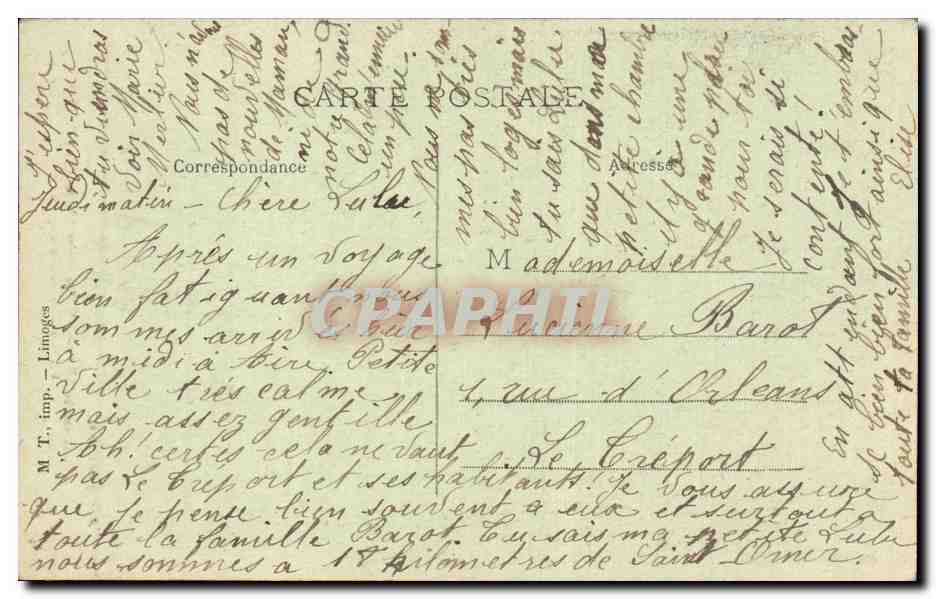 CARTE POSTALE
Correspondance
Adresse
M T., imp. - Limoges
Jeudi matin - Chère Lulu,
Après un voyage
bien fatiguant nous
sommes arrivés hier
à midi à Aire. Petite
ville très calme
mais assez gentille
Ah! certes cela ne vaut
pas Le Tréport et ses habitants! Je vous assure
que je pense bien souvent à eux et surtout à
toute la famille Bazot. Tu sais ma petite Lulu
nous sommes à 18 kilomètres de Saint Omer.
J'espère
bien que
tu viendras
voir Marie
Nous n'avons
pas de
nouvelles
de Maman,
ni
notre grand
un peu.
Nous som
mes pas très
bien logés mais
tu sais Lulu
que dans ma
petite chambre
il y a une
grande place
pour toi
Je serais si
contente!
En attendant je t'embras
se bien bien fort ainsi que
toute ta famille Elise
Mademoiselle
Lucienne Bazot
1, rue d'Orléans
Le Tréport
CPAPHIL